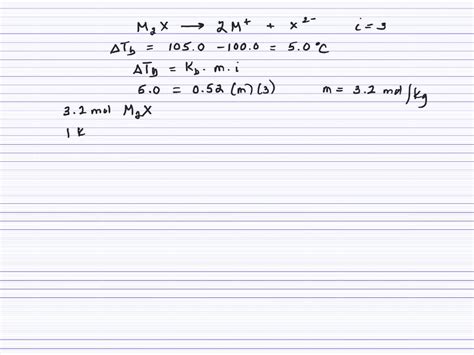 M₂X → 2M⁺ + X²⁻ i=3
ΔT_b = 105.0 - 100.0 = 5.0 °C
ΔT_b = K_b . m . i
5.0 = 0.52 (m) (3) m = 3.2 mol/kg
3.2 mol M₂X
1 K